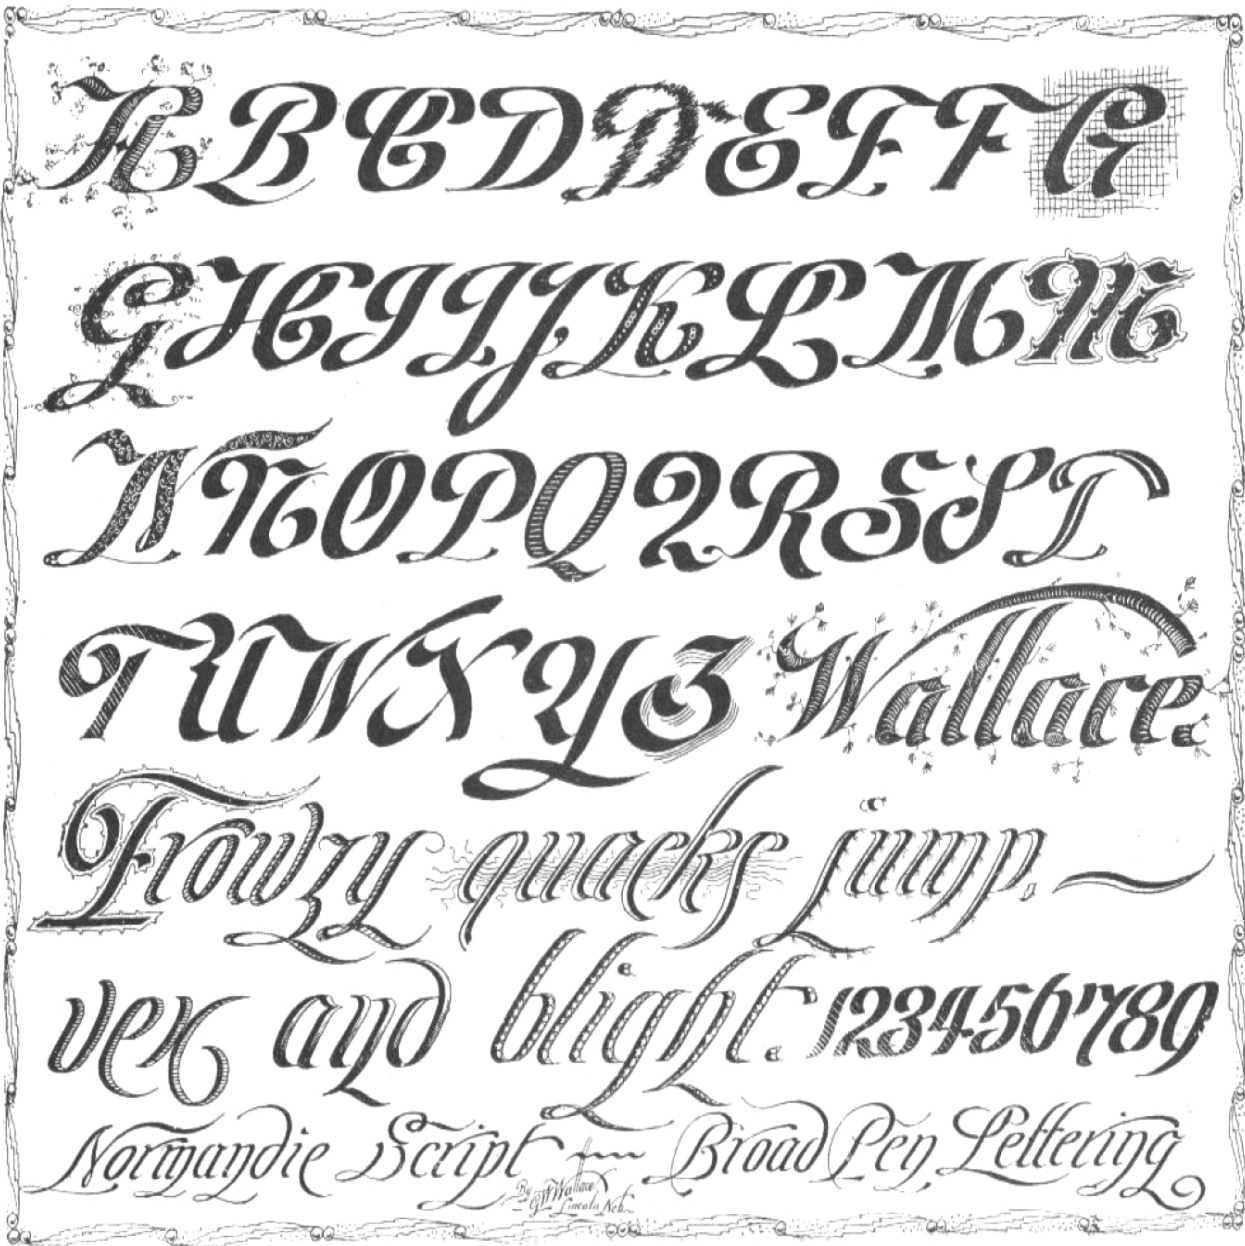 A B C D D E F F G
G H I I J K L M M
N N O P Q Q R S S T
T U W X Y Z Wallace.
Frowzy quacks jump,
vex and blight. 123456789
Normandie Script — Broad Pen Lettering
By
G.W. Wallace
Lincoln Neb.